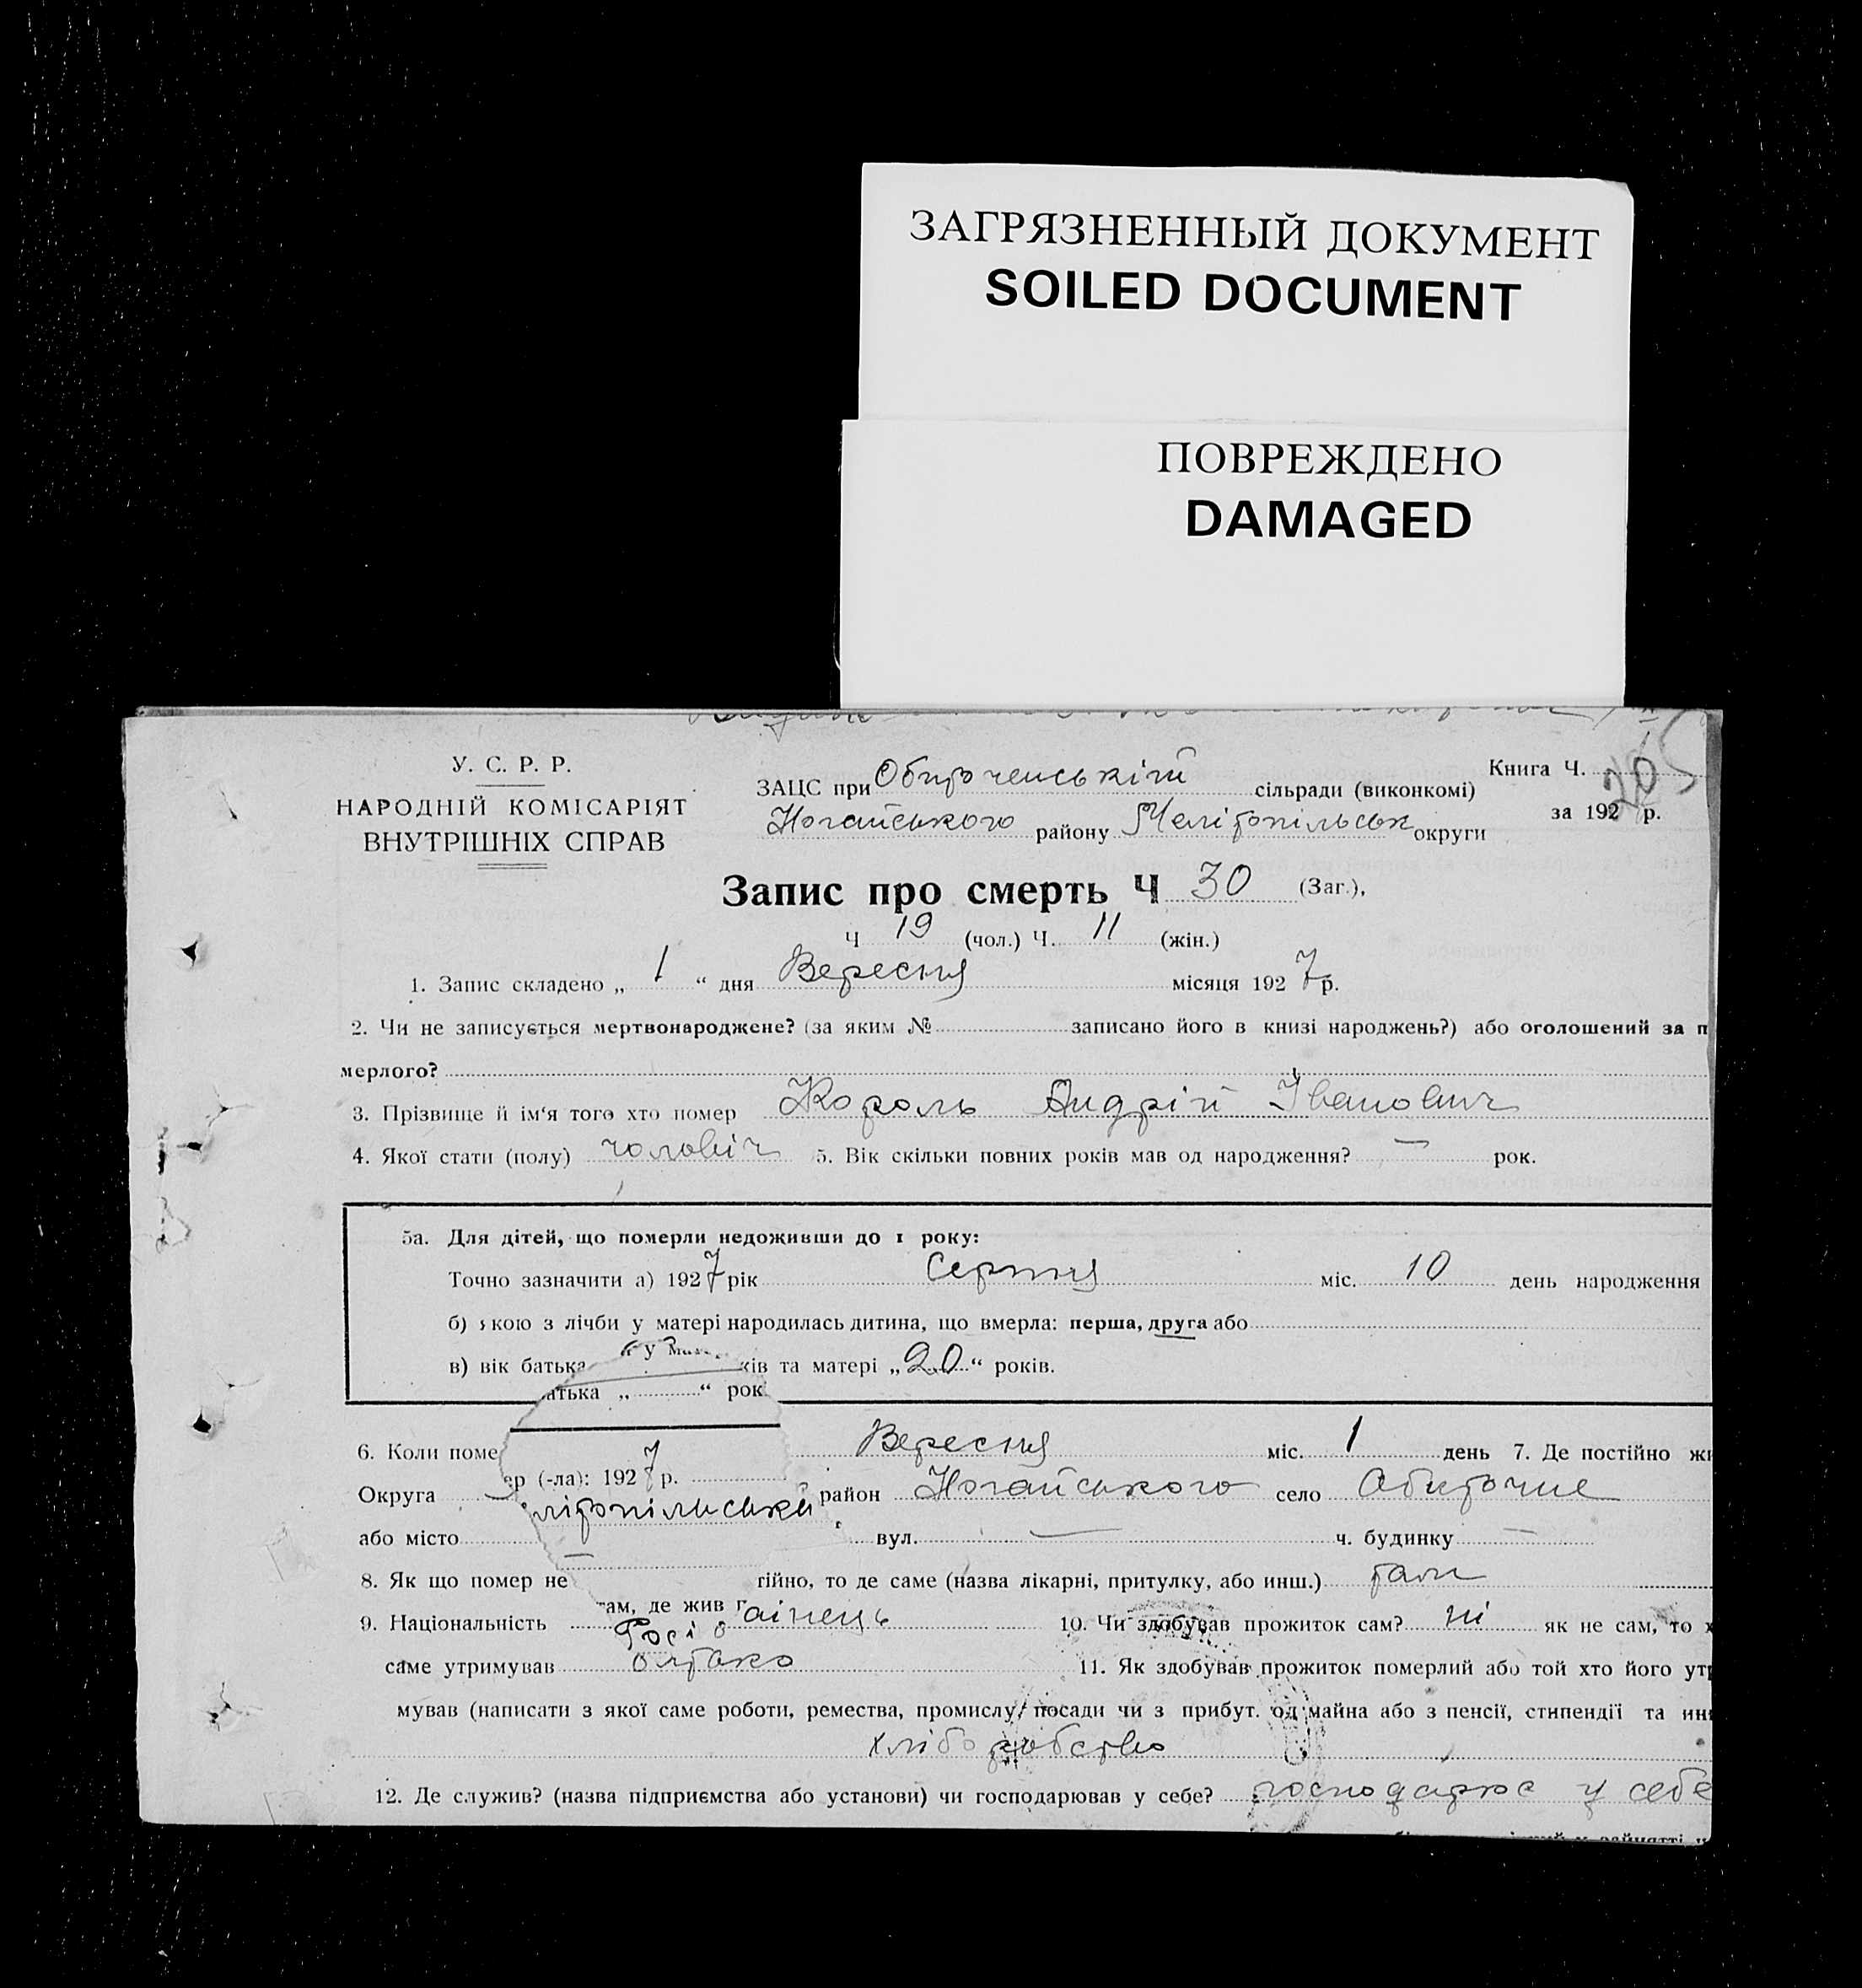 ЗАГРЯЗНЕННЫЙ ДОКУМЕНТ
SOILED DOCUMENT
ПОВРЕЖДЕНО
DAMAGED
У. С. Р. Р.
НАРОДНІЙ КОМІСАРІЯТ
ВНУТРІШНІХ СПРАВ
ЗАЦС при Обиточенській сільради (виконкомі)
Ногайського району Мелітопільськ округи
Книга Ч.
за 192 р.
Запис про смерть Ч 30 (Заг.),
Ч 19 (чол.) Ч. 11 (жін.)
1. Запис складено „ 1 “ дня Вересня місяця 1927 р.
2. Чи не записується мертвонароджене? (за яким № записано його в книзі народжень?) або оголошений за п
мерлого?
3. Прізвище й ім‘я того хто помер Король Андрій Іванович
4. Якої стати (полу) чоловіч 5. Вік скільки повних років мав од народження? — рок.
5а. Для дітей, що померли недоживши до 1 року:
Точно зазначити а) 1927 рік Серпня міс. 10 день народження
б) якою з лічби у матері народилась дитина, що вмерла: перша, друга або
в) вік батька ків та матері „20“ років.
атька „ “ рок
6. Коли поме Вересня міс. 1 день 7. Де постійно жи
ер (-ла): 1927 р.
Округа ліпопільськи район Ногайського село Обиточне
або місто — вул. — ч. будинку —
8. Як що помер не тійно, то де саме (назва лікарні, притулку, або инш.) там
там, де жив п
9. Національність 10. Чи здобував прожиток сам? ні як не сам, то х
саме утримував 11. Як здобував прожиток померлий або той хто його утр
мував (написати з якої саме роботи, ремества, промислу, посади чи з прибут. од майна або з пенсії, стипендії та ин
хліборобство
12. Де служив? (назва підприємства або установи) чи господарював у себе? господарює у себе